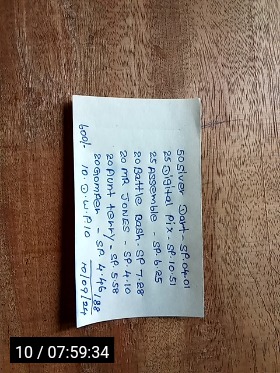 50 Silver Dart - SP. 04.01
25 Digital Pix - SP. 10.51
25 Assemble - SP. 6.25
20 Battle Bash. SP 7.28
20 MR JONES - SP. 4.10
20 Aunt terry - SP. 5.58
20 Gompen - SP 4.46/88
600/- ID. D.W.P10 10/09/24
10 / 07:59:34